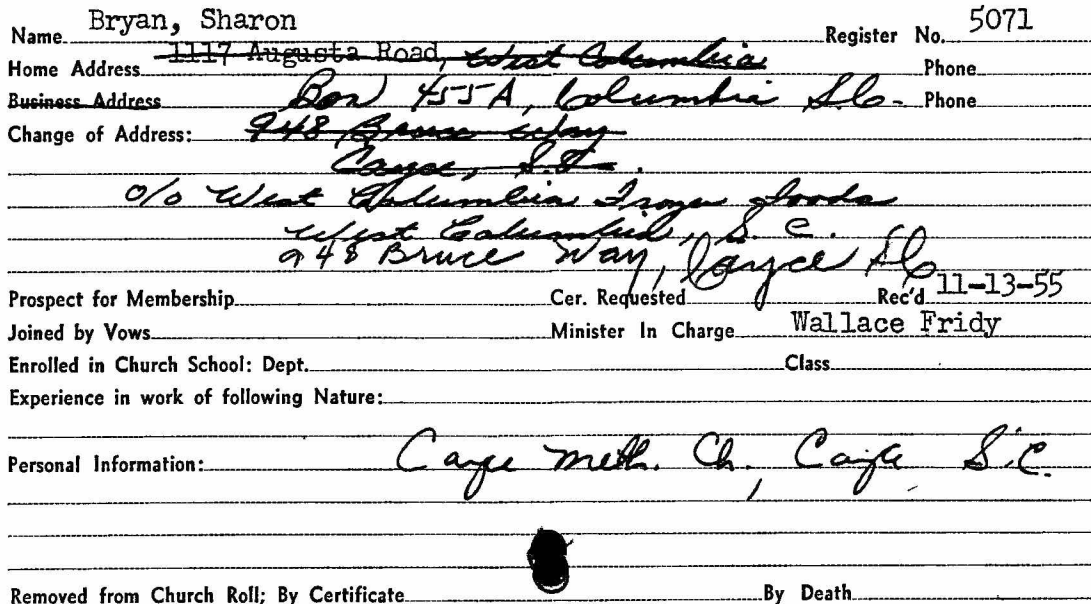 Name Bryan, Sharon Register No. 5071
Home Address 1117 Augusta Road, West Columbia Phone
Business Address Box 455A, Columbia S.C. Phone
Change of Address: 948 Bruce Way
Cayce, S.C.
c/o West Columbia Frozen Foods
West Columbia, S.C.
948 Bruce Way, Cayce SC
Prospect for Membership Cer. Requested Rec'd 11-13-55
Joined by Vows Minister In Charge Wallace Fridy
Enrolled in Church School: Dept. Class
Experience in work of following Nature:
Personal Information: Cayce Meth. Ch., Cayce S.C.
Removed from Church Roll; By Certificate By Death